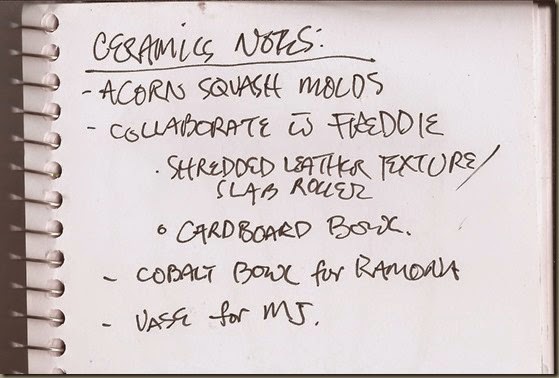 CERAMICS NOTES:
- ACORN SQUASH MOLDS
- COLLABORATE w̄ FREDDIE
· SHREDDED LEATHER TEXTURE/
SLAB ROLLER
• CARDBOARD BOWL.
- COBALT BOWL for RAMONA
- VASE for MJ.